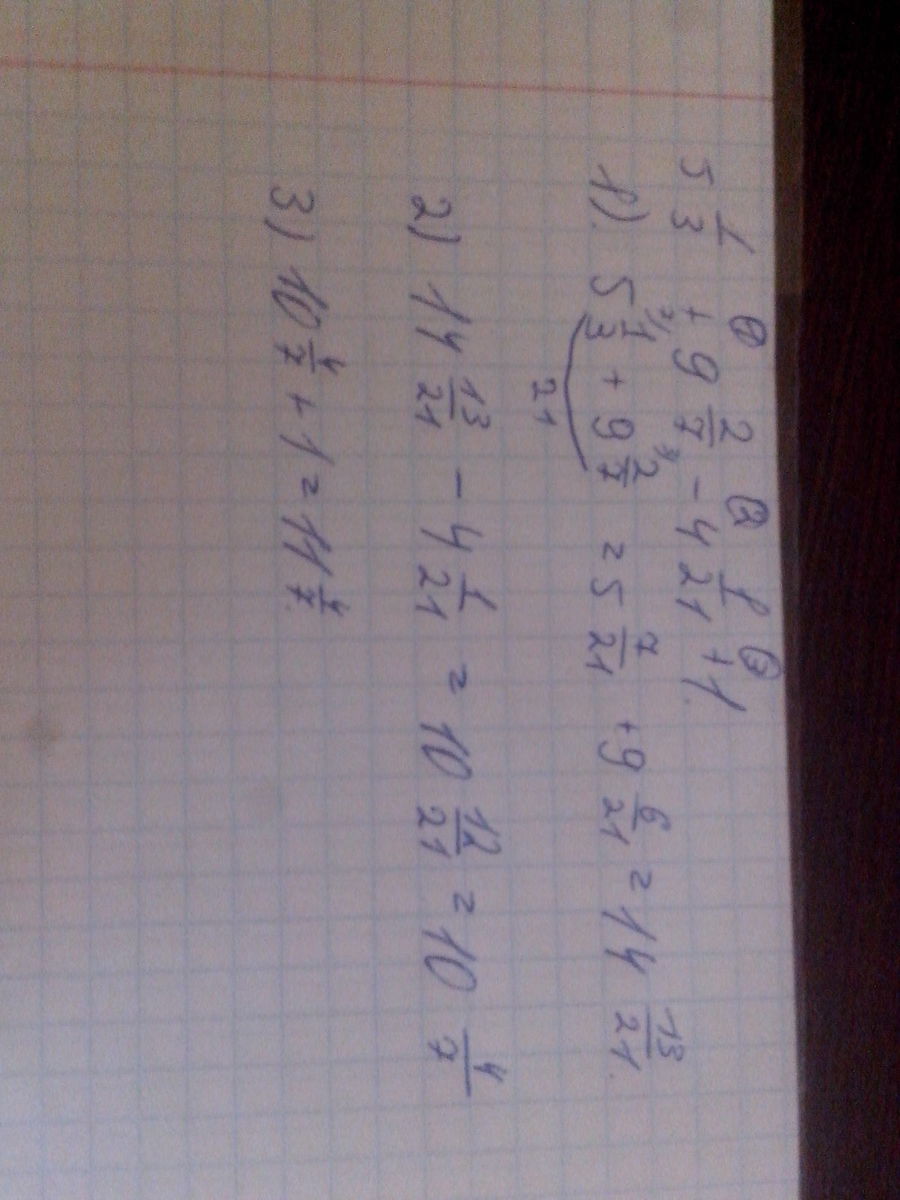 ① ② ③
5 1/3 + 9 2/7 - 4 1/21 + 1.
1). 5 1/3 + 9 2/7 = 5 7/21 + 9 6/21 = 14 13/21.
21
2) 14 13/21 - 4 1/21 = 10 12/21 = 10 4/7
3) 10 4/7 + 1 = 11 4/7.